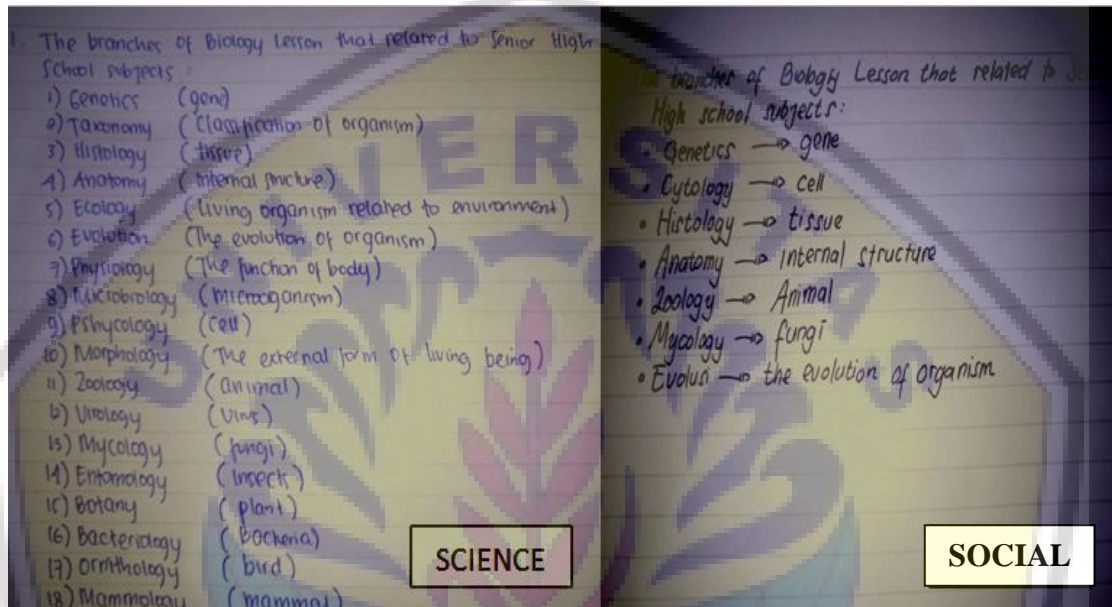 1. The branches of Biology Lesson that related to Senior High
School subjects :
1) Genetics (gene)
2) Taxonomy (Classification of organism)
3) Histology (tissue)
4) Anatomy (internal structure)
5) Ecology (living organism related to environment)
6) Evolution (The evolution of organism)
7) Physiology (The function of body)
8) Microbiology (microorganism)
9) Pshycology (cell)
10) Morphology (The external form of living being)
11) Zoology (animal)
12) Virology (virus)
13) Mycology (fungi)
14) Entomology (insects)
15) Botany (plant)
16) Bacteriology (bacteria)
17) Ornithology (bird)
18) Mammology (mammal)
SCIENCE
branches of Biology Lesson that related to
High school subjects:
• Genetics → gene
• Cytology → cell
• Histology → tissue
• Anatomy → internal structure
• Zoology → Animal
• Mycology → fungi
• Evolusi → the evolution of organism
SOCIAL